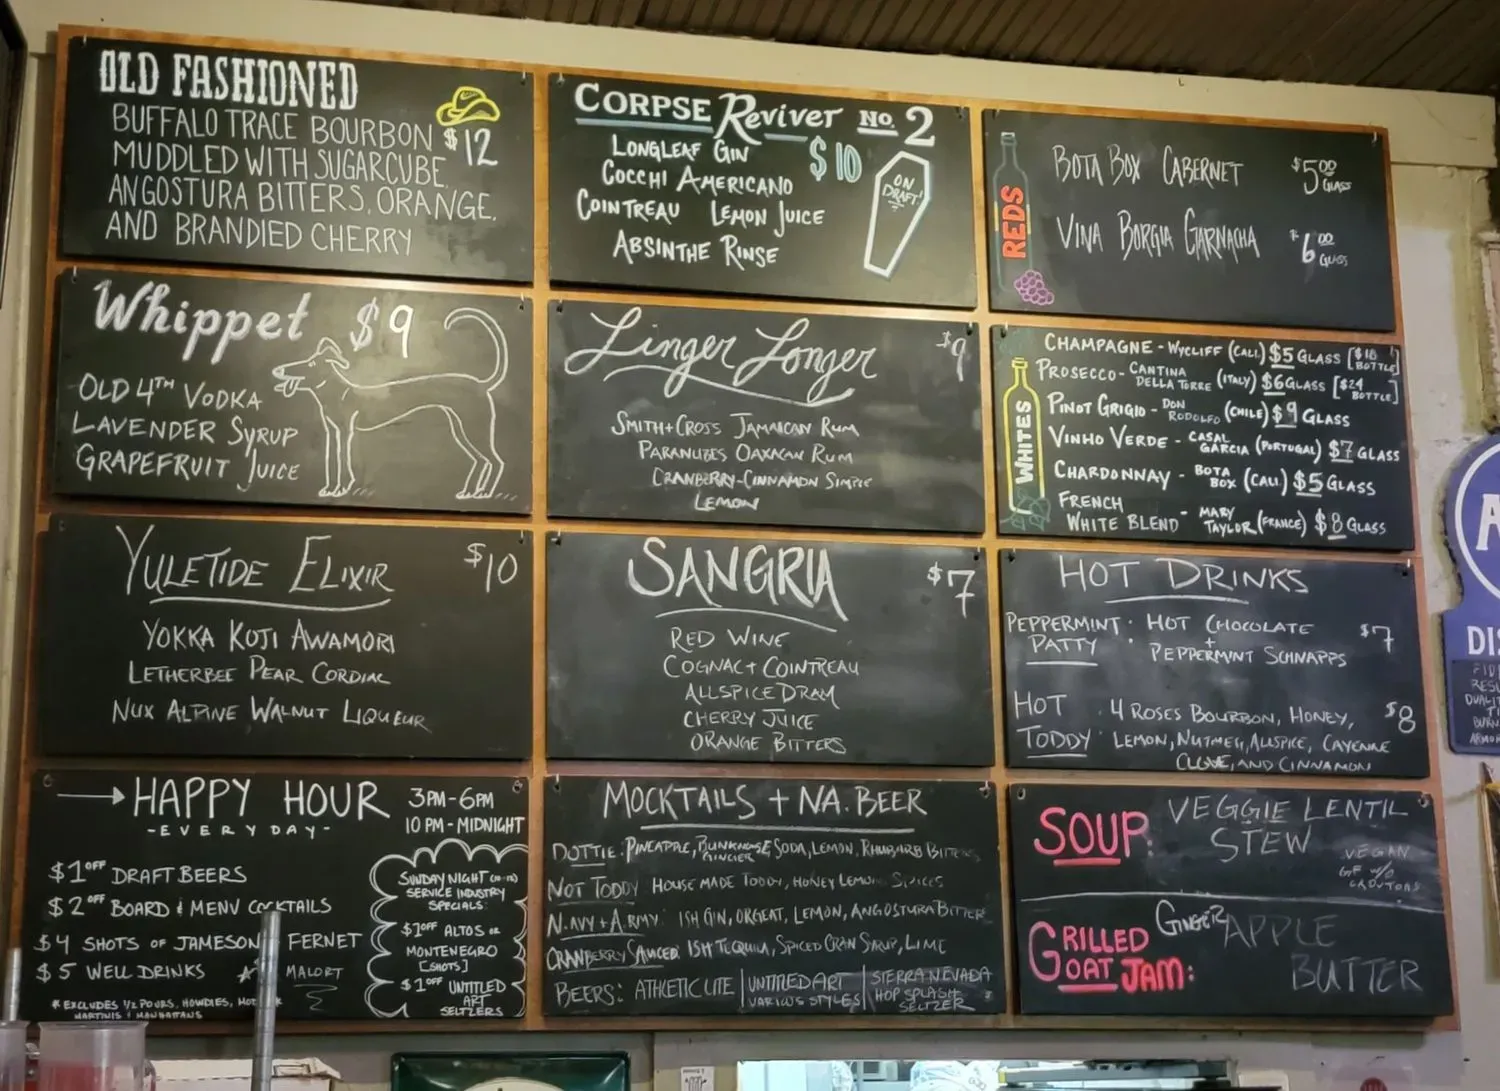 OLD FASHIONED
$12
BUFFALO TRACE BOURBON
MUDDLED WITH SUGARCUBE,
ANGOSTURA BITTERS, ORANGE,
AND BRANDIED CHERRY
CORPSE REVIVER NO. 2
$10
LONGLEAF GIN
COCCHI AMERICANO
COINTREAU LEMON JUICE
ABSINTHE RINSE
ON
DRAFT!
REDS
BOTA BOX CABERNET $5.00 GLASS
VINA BORGIA GARNACHA $6.00 GLASS
Whippet $9
OLD 4TH VODKA
LAVENDER SYRUP
GRAPEFRUIT JUICE
Linger Longer $9
SMITH+CROSS JAMAICAN RUM
PARANUBES OAXACAN RUM
CRANBERRY-CINNAMON SIMPLE
LEMON
WHITES
CHAMPAGNE - WYCLIFF (CALI) $5 GLASS [BOTTLE]
PROSECCO - CANTINA DELLA TORRE (ITALY) $6 GLASS [$24 BOTTLE]
PINOT GRIGIO - DON RODOLFO (CHILE) $9 GLASS
VINHO VERDE - CASAL GARCIA (PORTUGAL) $7 GLASS
CHARDONNAY - BOTA BOX (CALI) $5 GLASS
FRENCH
WHITE BLEND - MARY TAYLOR (FRANCE) $8 GLASS
YULETIDE ELIXIR $10
YOKKA KOJI AWAMORI
LETHERBEE PEAR CORDIAL
NUX ALPINE WALNUT LIQUEUR
SANGRIA $7
RED WINE
COGNAC + COINTREAU
ALLSPICE DRAM
CHERRY JUICE
ORANGE BITTERS
HOT DRINKS
PEPPERMINT PATTY: HOT CHOCOLATE $7
+
PEPPERMINT SCHNAPPS
HOT TODDY 4 ROSES BOURBON, HONEY, $8
LEMON, NUTMEG, ALLSPICE, CAYENNE
CLOVE, AND CINNAMON
HAPPY HOUR
-EVERYDAY-
3PM-6PM
10PM-MIDNIGHT
$1 OFF DRAFT BEERS
$2 OFF BOARD & MENU COCKTAILS
$4 SHOTS OF JAMESON FERNET
$5 WELL DRINKS MALORT
* EXCLUDES 1/2 POURS, HOWDIES,
MARTINIS & MANHATTANS
SUNDAY NIGHT
SERVICE INDUSTRY
SPECIALS:
$1 OFF ALTOS OR
MONTENEGRO
[SHOTS]
$1 OFF UNTITLED
ART
SELTZERS
MOCKTAILS + NA. BEER
DOTTIE: PINEAPPLE, GINGER SODA, LEMON, RHUBARB BITTERS
NOT TODDY HOUSE MADE TODDY, HONEY LEMON SPICES
N.AVY + A.RMY: ISH GIN, ORGEAT, LEMON, ANGOSTURA BITTERS
CRANBERRY SAUCED: ISH TEQUILA, SPICED CRAN SYRUP, LIME
BEERS: ATHLETIC LITE | UNTITLED ART VARIOUS STYLES | SIERRA NEVADA HOP SPLASH SELTZER
SOUP: VEGGIE LENTIL
STEW
VEGAN
GF W/O
CROUTONS
GRILLED GOAT JAM: GINGER APPLE
BUTTER